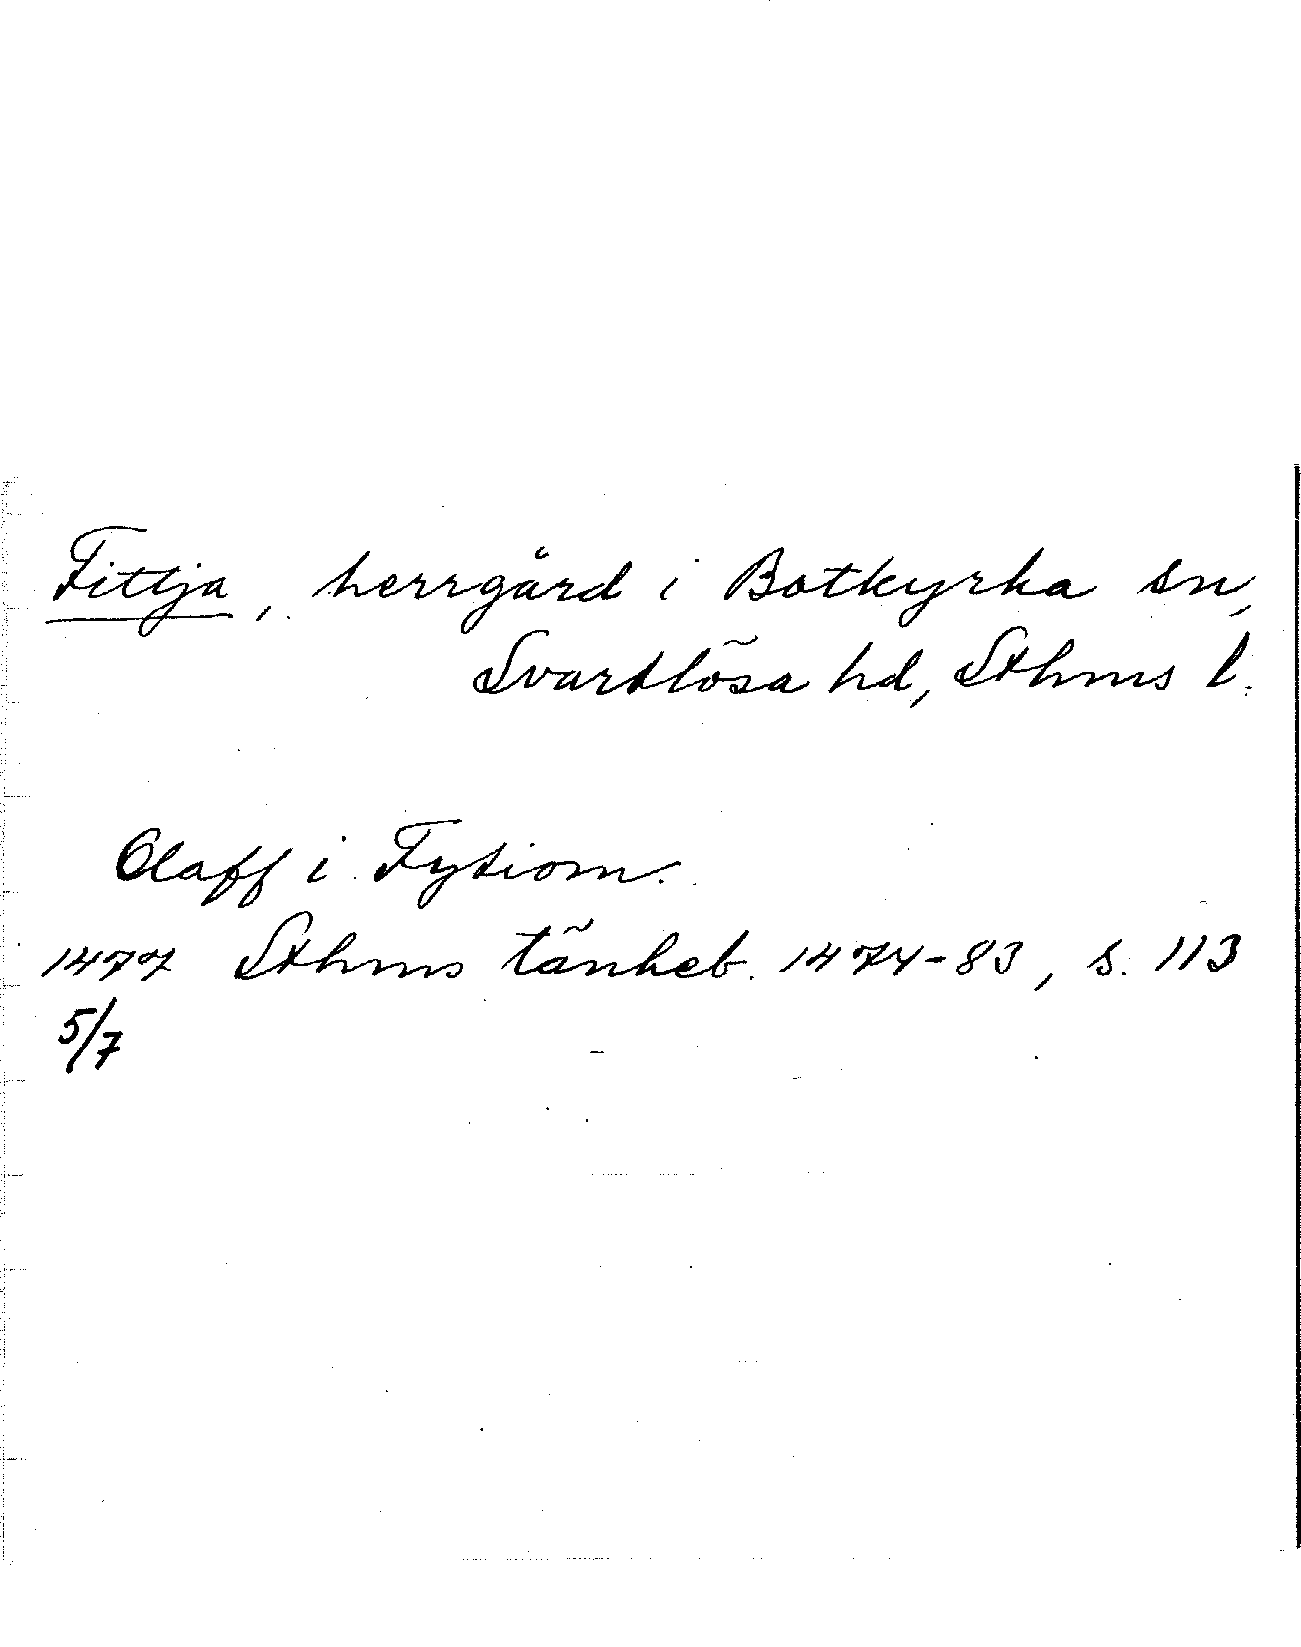 Fittja, herrgård i Botkyrka sn,
Svartlösa hd, Sthms l.
Olaff i Fytiom.
1477 Sthms tänkeb. 1474-83, s. 113
5/7